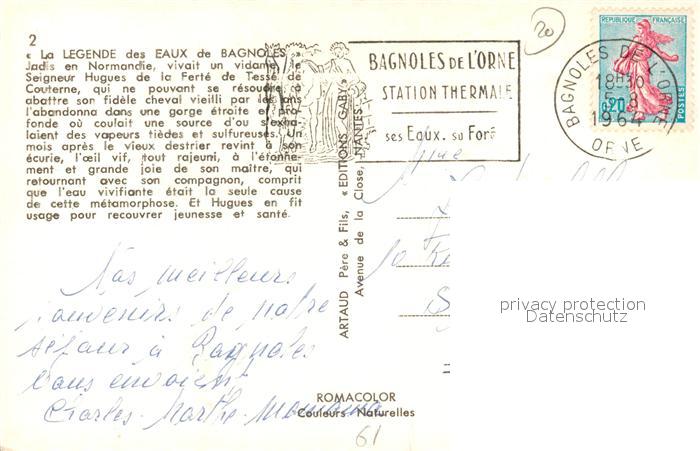 2
« La LEGENDE des EAUX de BAGNOLES »
Jadis en Normandie, vivait un vidame, le
Seigneur Hugues de la Ferté de Tessé de
Couterne, qui ne pouvant se résoudre à
abattre son fidèle cheval vieilli par les ans
l'abandonna dans une gorge étroite et pro-
fonde où coulait une source d'ou s'exha-
laient des vapeurs tièdes et sulfureuses. Un
mois après le vieux destrier revint à son
écurie, l'œil vif, tout rajeuni, à l'étonne-
ment et grande joie de son maître, qui
retournant avec son compagnon, comprit
que l'eau vivifiante était la seule cause
de cette métamorphose. Et Hugues en fit
usage pour recouvrer jeunesse et santé.
Nos meilleurs
souvenirs de notre
séjour à Bagnoles
vous envoient
Charles - Marthe -
ARTAUD Père & Fils, « EDITIONS GABY »
Avenue de la Close, NANTES
ROMACOLOR
Couleurs Naturelles
61
20
BAGNOLES DE L'ORNE
STATION THERMALE
ses Eaux. sa Forêt
REPUBLIQUE FRANÇAISE
0,20
POSTES
BAGNOLES DE L'ORNE
18H30
5-8
1964
ORNE
Mme
privacy protection
Datenschutz